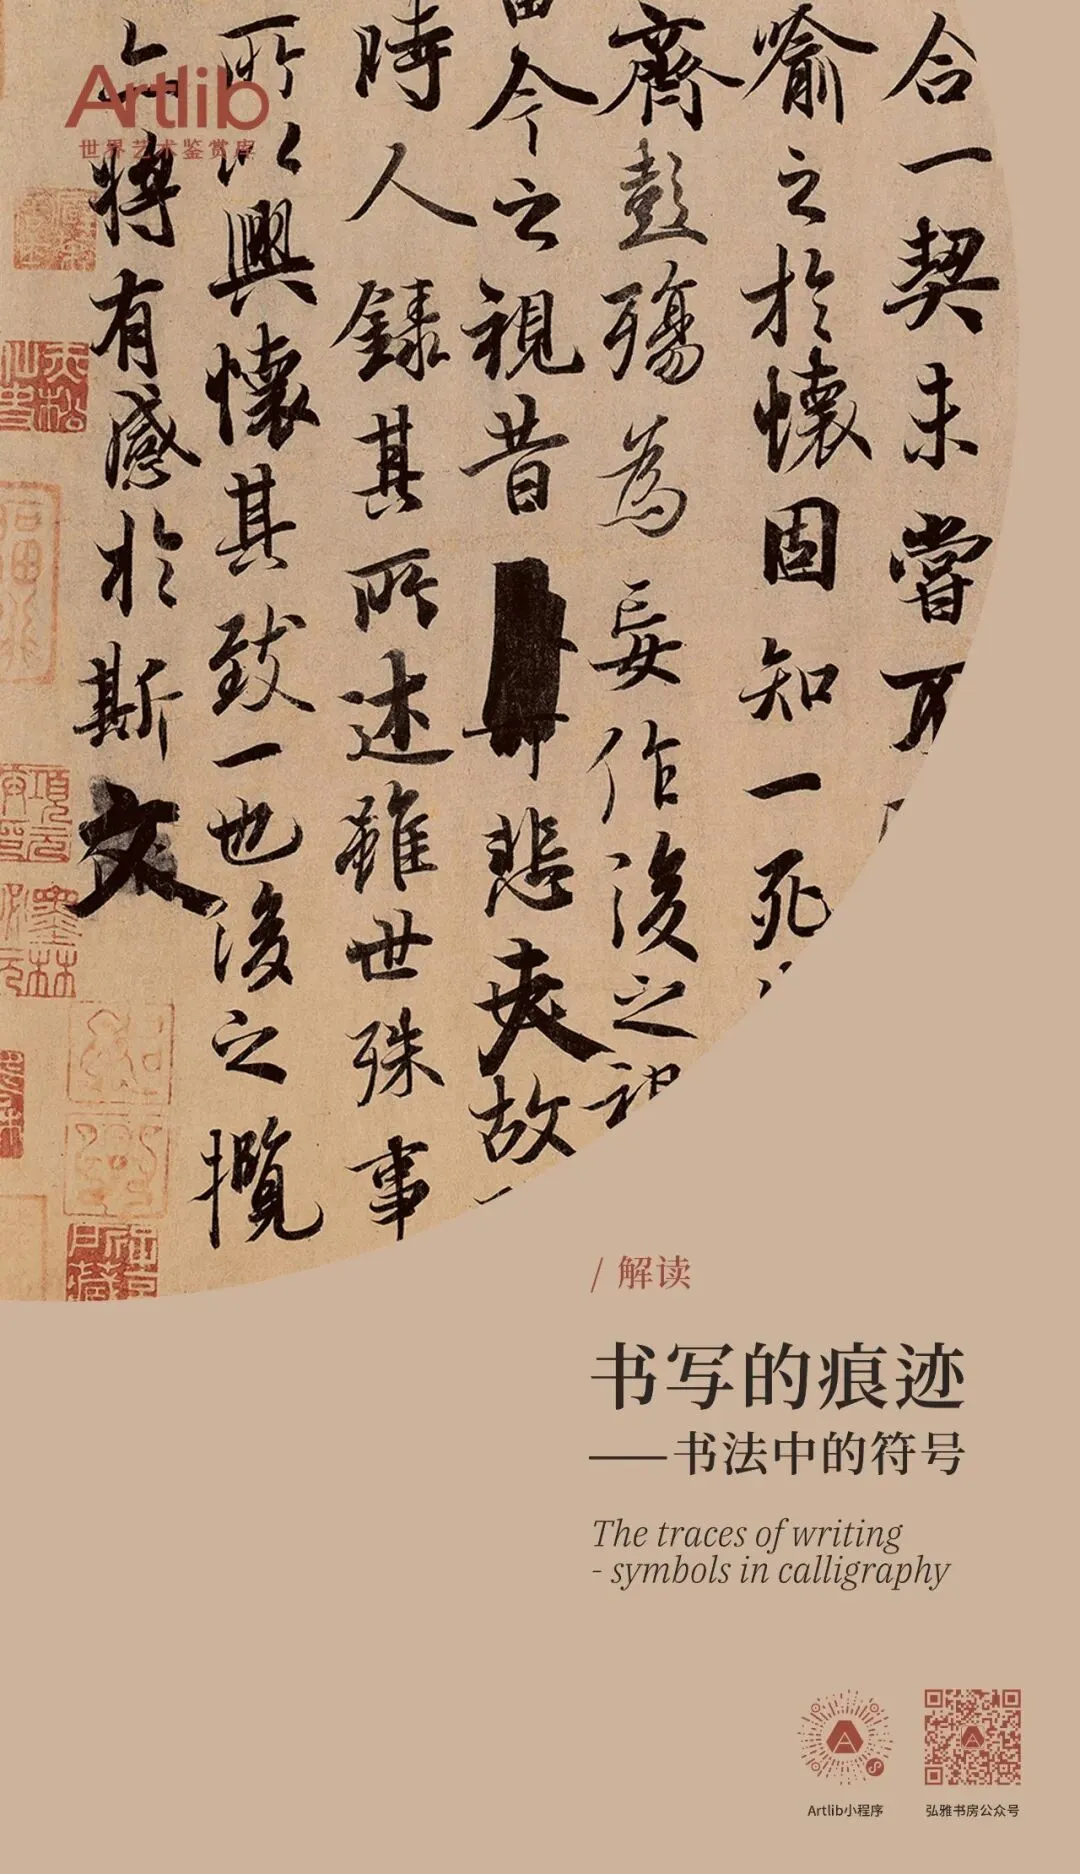 Artlib
世界艺术鉴赏库
合一契未嘗
喻之於懷固知一死
齊彭殤為妄作後之
今之視昔悲夫故
時人錄其所述雖世殊事
所以興懷其致一也後之攬
將有感於斯文
/ 解读
书写的痕迹
——书法中的符号
The traces of writing
- symbols in calligraphy
Artlib小程序
弘雅书房公众号